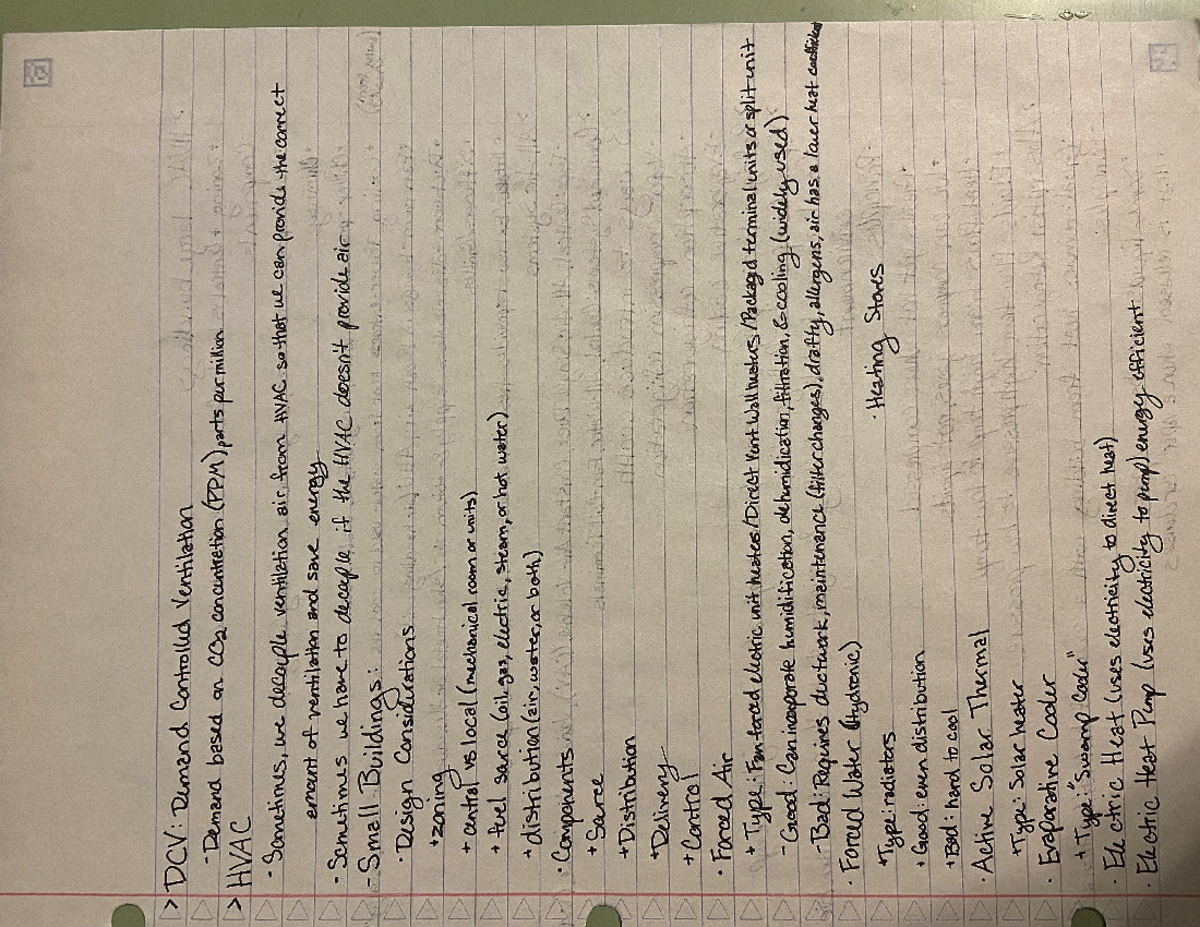 > DCV: Demand Controlled Ventilation
- Demand based on CO2 concentration (PPM), parts per million
> HVAC
- Sometimes, we decouple ventilation air from HVAC so that we can provide the correct
amount of ventilation and save energy
- Sometimes we have to decouple if the HVAC doesn't provide air
- Small Buildings:
· Design Considerations
+ zoning
+ central vs local (mechanical room or units)
+ fuel source (oil, gas, electric, steam, or hot water)
+ distribution (air, water, or both)
· Components
+ Source
+ Distribution
+ Delivery
+ Control
· Forced Air
+ Type: Fan forced electric unit heaters / Direct Vent Wall heaters / Packaged terminal units or split unit
- Good: Can incorporate humidification, dehumidication, filtration, & cooling (widely used)
- Bad: Requires ductwork, maintenance (filter changes), drafty, allergens, air has a lower heat coefficient
· Forced Water (Hydronic)
+ Type: radiators
· Heating Stoves
+ Good: even distribution
+ Bad: hard to cool
· Active Solar Thermal
+ Type: Solar heater
· Evaporative Cooler
+ Type: "Swamp Cooler"
· Electric Heat (uses electricity to direct heat)
· Electric Heat Pump (uses electricity to pump) energy efficient